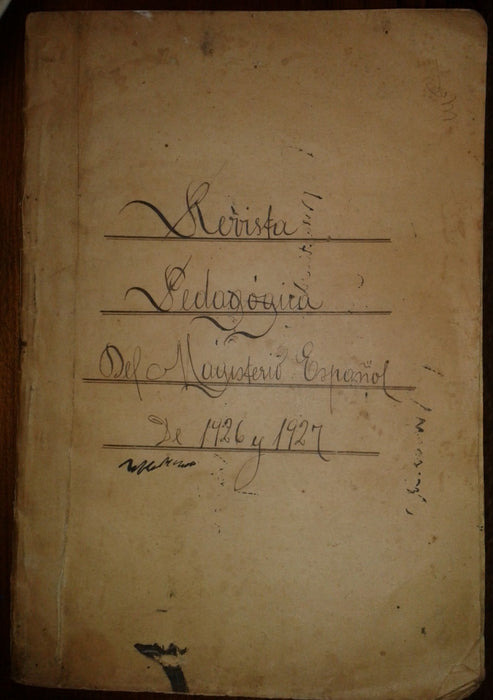 Revista
Pedagógica
Del Magisterio Español
De 1926 y 1927